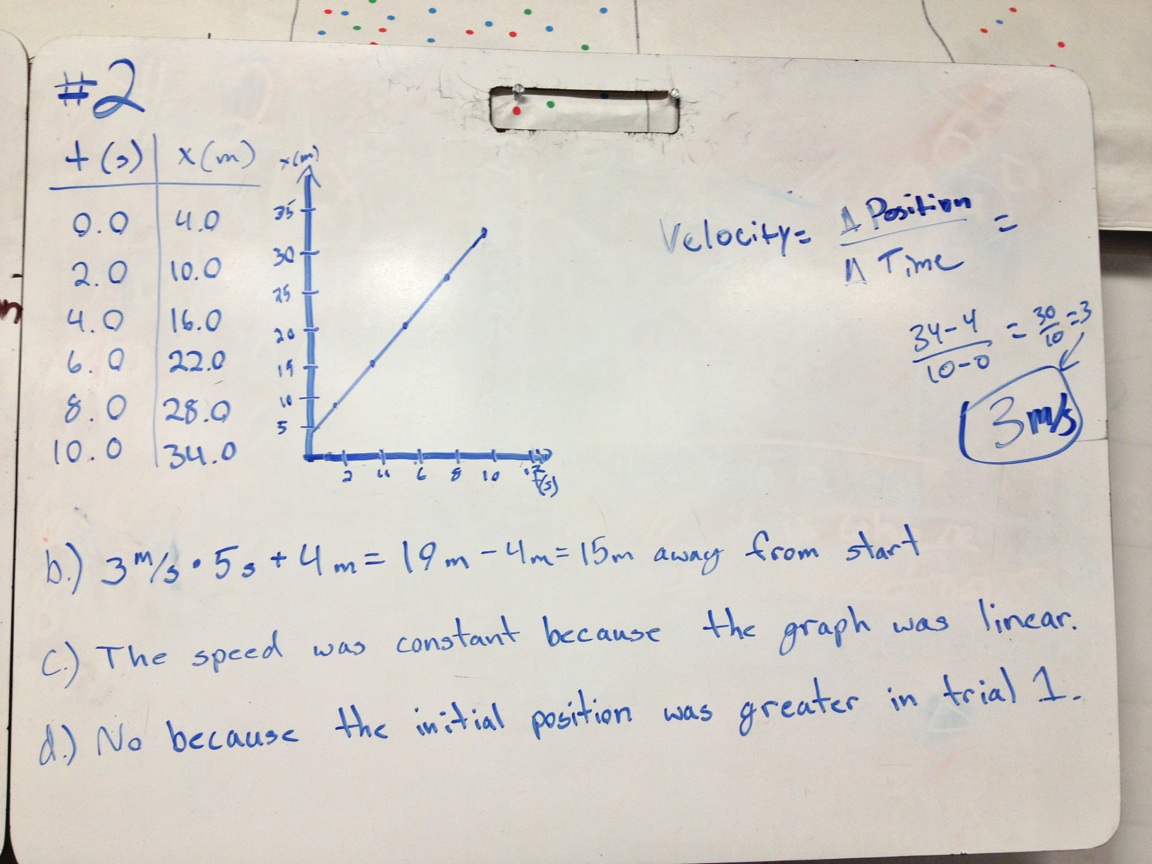 #2
t (s) x (m)
0.0 4.0
2.0 10.0
4.0 16.0
6.0 22.0
8.0 28.0
10.0 34.0
x (m)
35
30
25
20
15
10
5
2 4 6 8 10 12
t(s)
Velocity = Δ Position / Δ Time =
34-4 / 10-0 = 30/10 = 3
3 m/s
b.) 3 m/s • 5 s + 4 m = 19 m - 4m = 15m away from start
c.) The speed was constant because the graph was linear.
d.) No because the initial position was greater in trial 1.